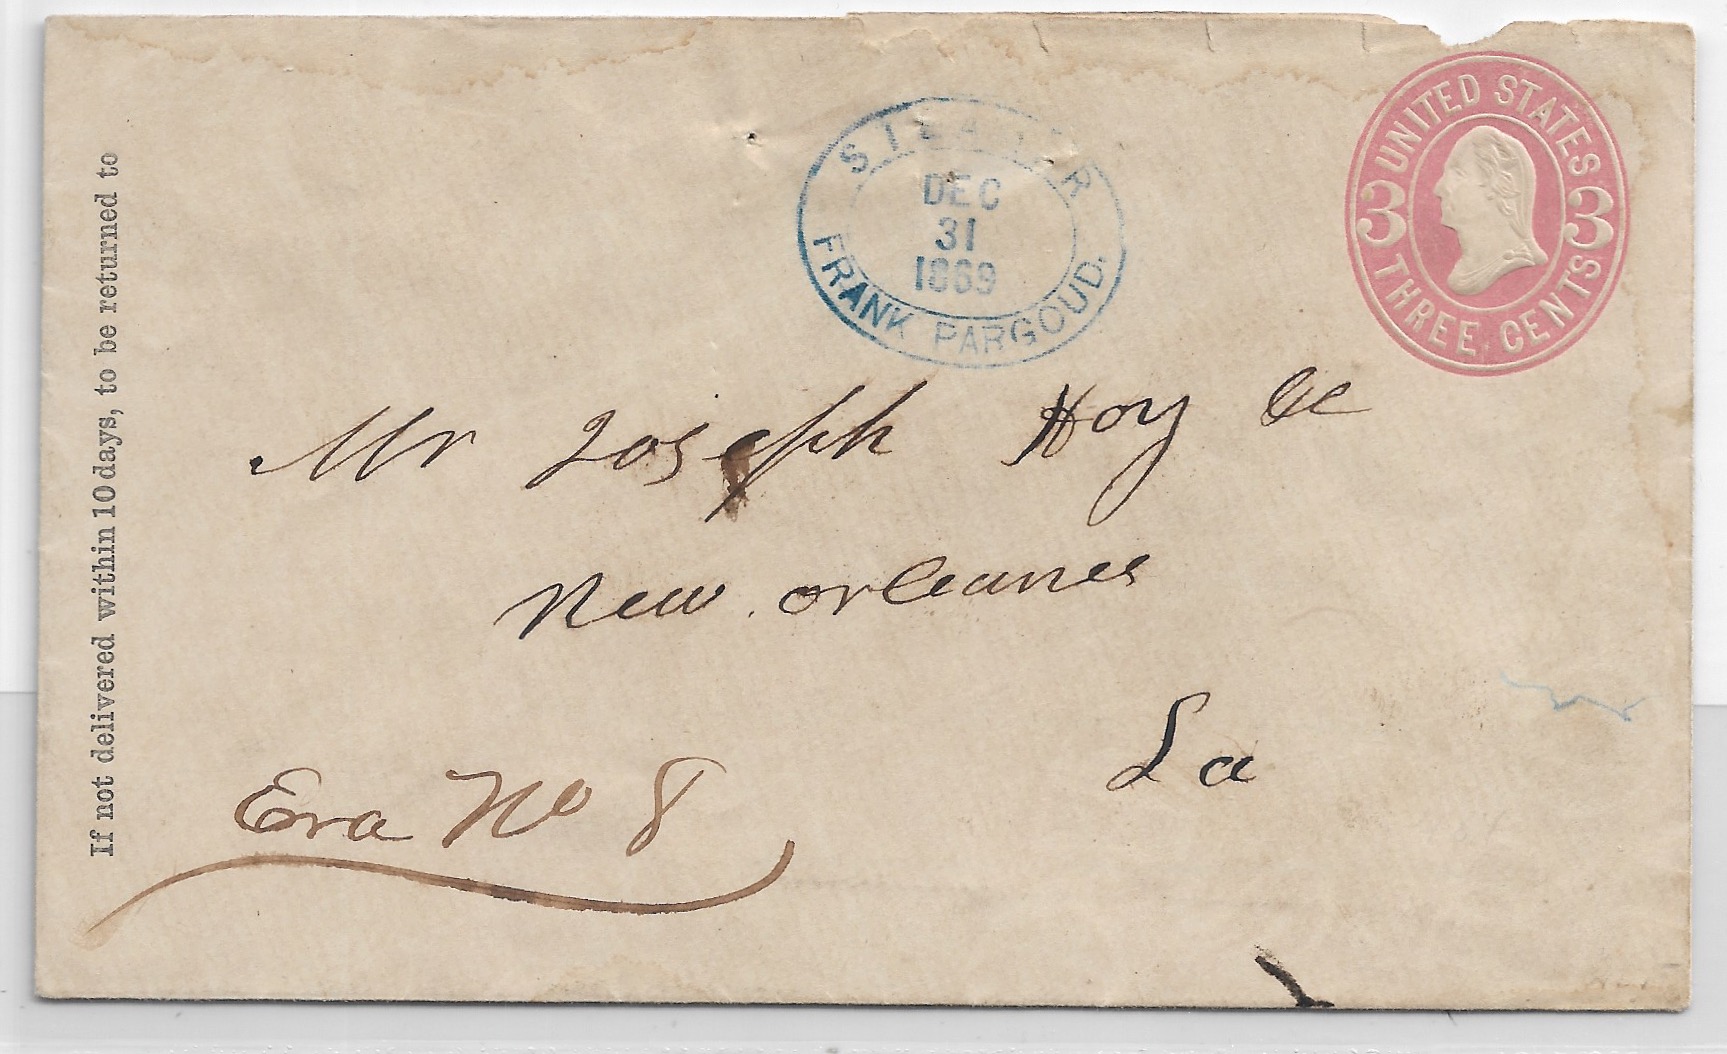 If not delivered within 10 days, to be returned to
STEAMER
DEC
31
1869
FRANK PARGOUD.
UNITED STATES
3 3
THREE CENTS
Mr Joseph Hoy &c
New orleanes
La
Era No 8